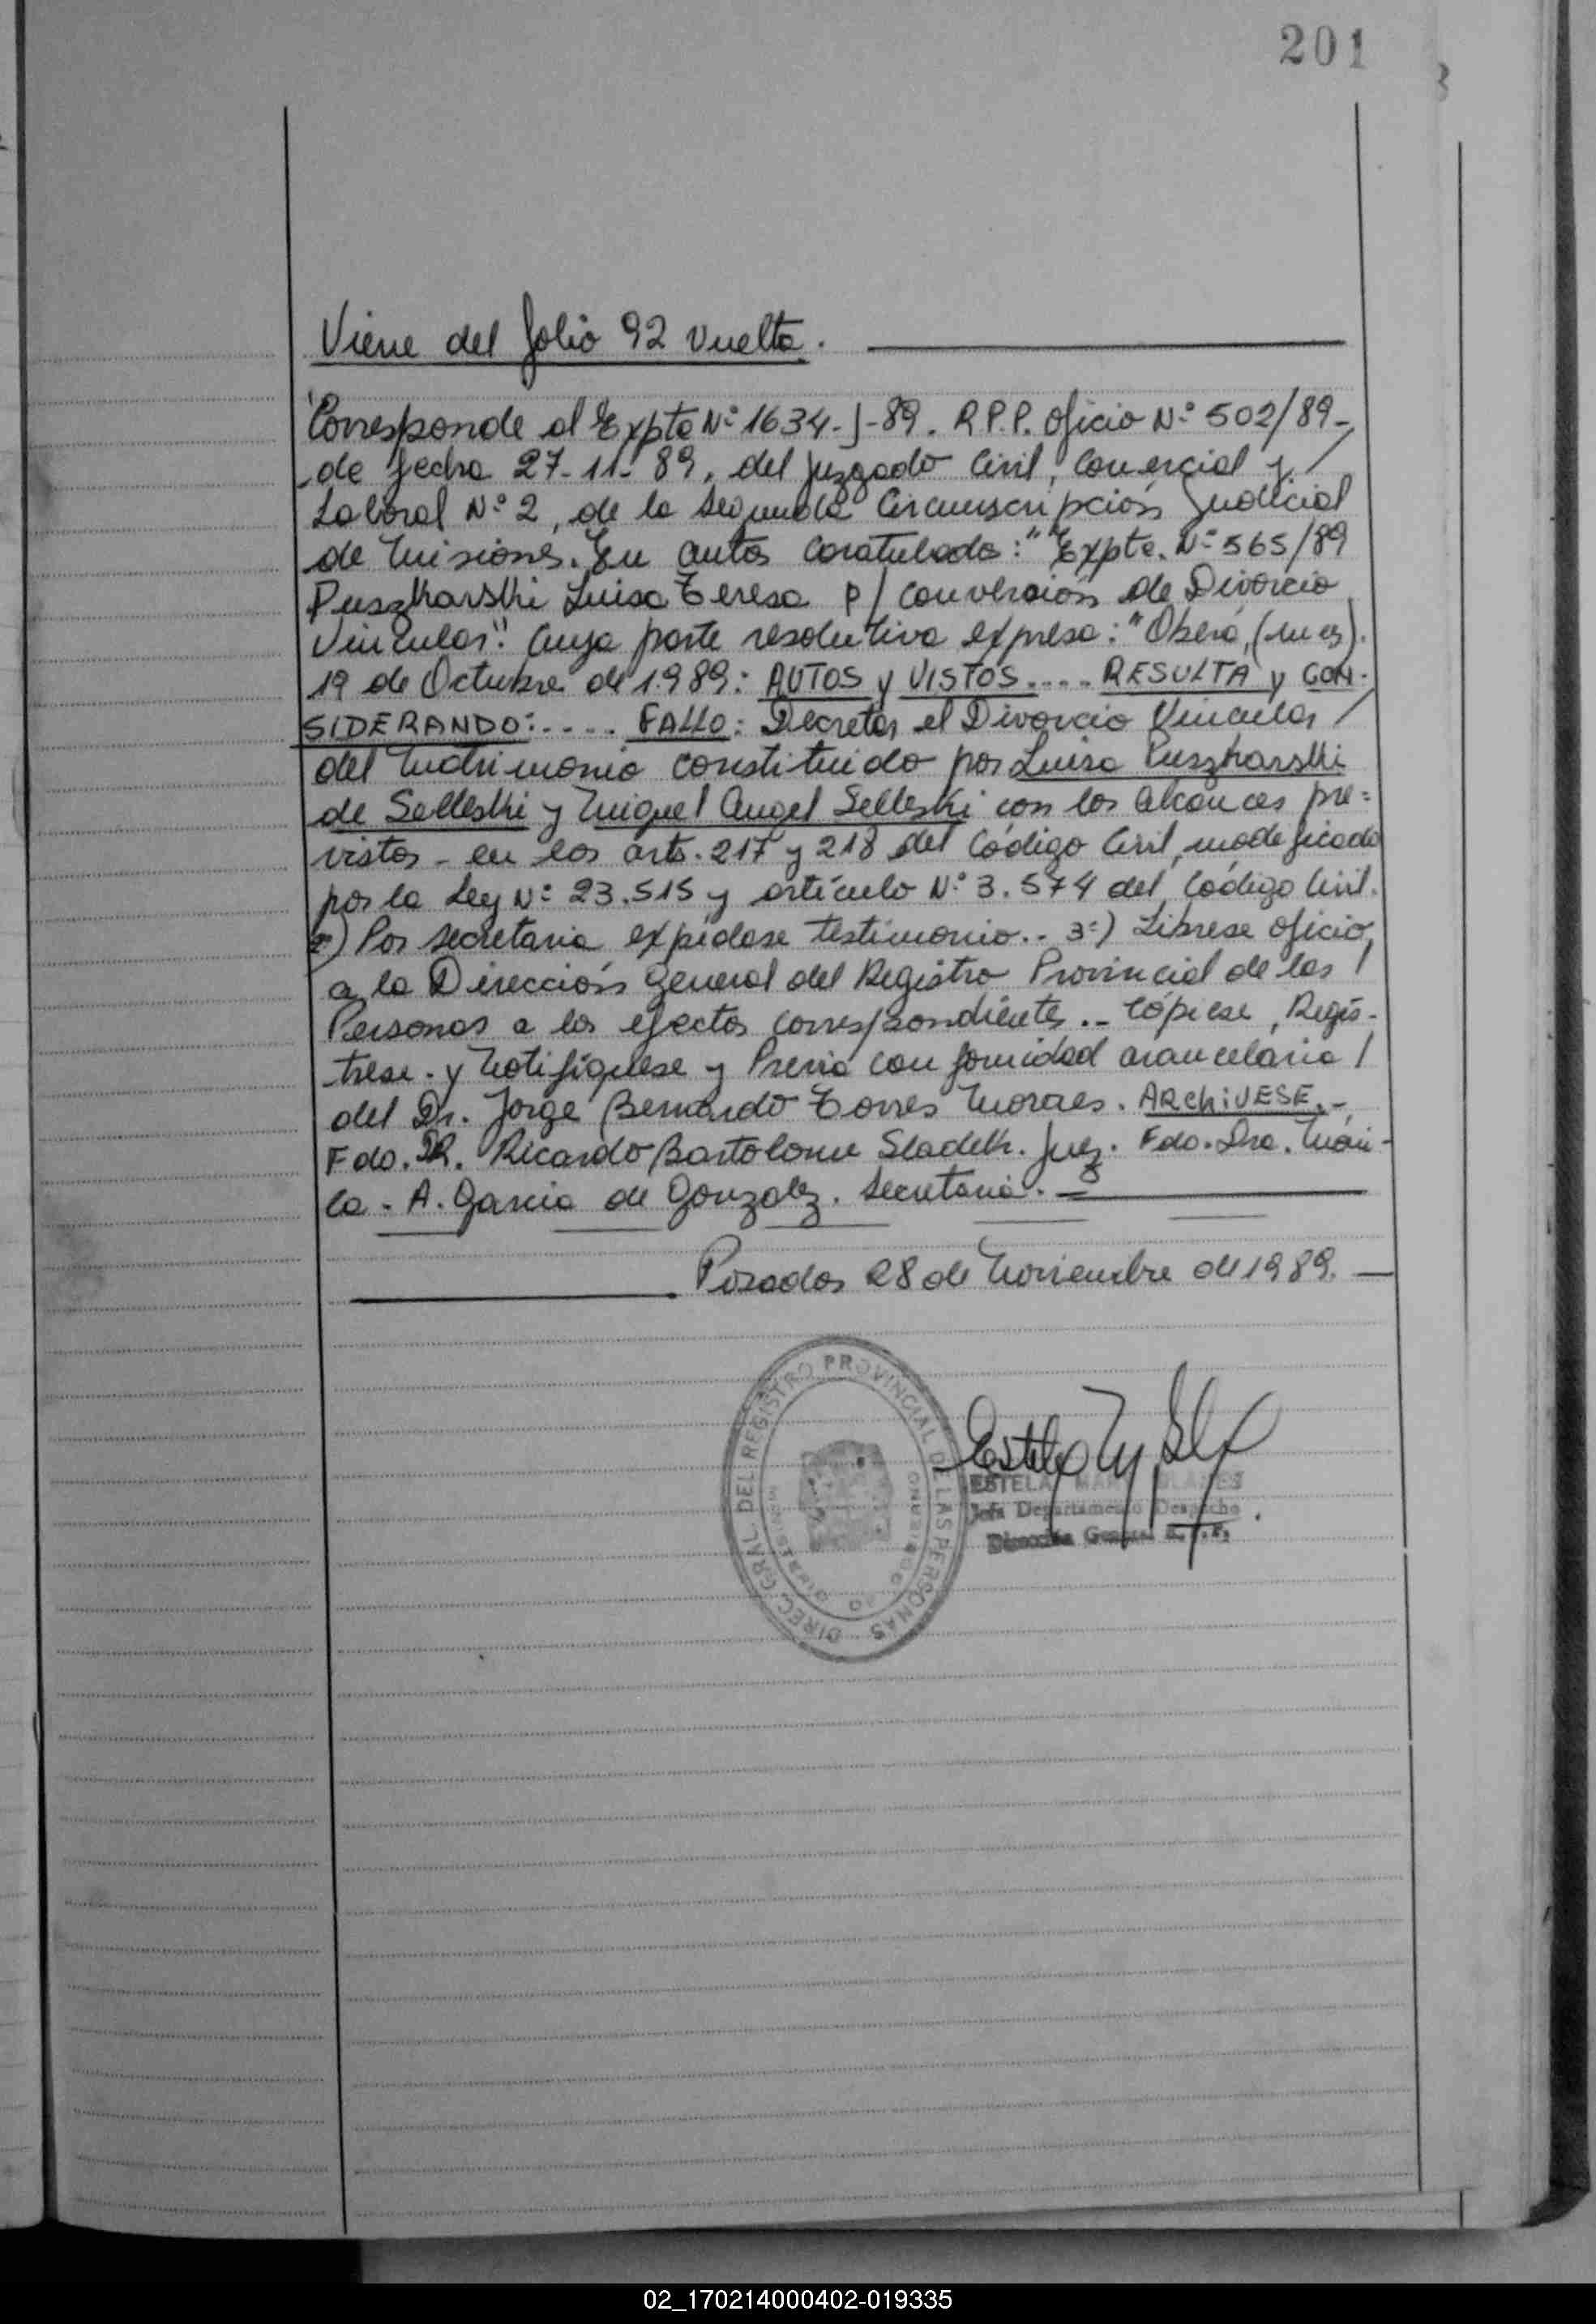 201
Viene del folio 92 vuelta.
Corresponde al Expte Nº 1634-J-89. R.P.P. Oficio Nº 502/89-
de fecha 27-11-89, del Juzgado Civil, Comercial y /
Laboral Nº 2, de la Segunda Circunscripción Judicial
de Misiones. En autos caratulado: "Expte. Nº 565/89
Puszkarski Luisa Teresa p/ conversión de Divorcio
Vincular". Cuya parte resolutiva expresa: "Oberá, (Mnes).
19 de Octubre de 1.989: AUTOS y VISTOS.... RESULTA y CON-
SIDERANDO:.... FALLO: Decretar el Divorcio Vincular /
del Matrimonio constituido por Luisa Puszkarski
de Selleski y Miguel Angel Selleski con los alcances pre=
vistos - en los arts. 217 y 218 del Código Civil, modificado
por la Ley Nº 23.515 y artículo Nº 3.574 del Código Civil.
2º) Por secretaria expídase testimonio.- 3º) Librese oficio
a la Dirección General del Registro Provincial de las /
Personas a los efectos correspondientes.- Cópiese, Regís-
trese - y Notifíquese y Previa conformidad arancelaria /
del Dr. Jorge Bernardo Torres Moraes. ARCHIVESE.-
Fdo. DR. Ricardo Bartolome Sladek. Juez. Fdo. Dra. Móni-
ca - A. Garcia de Gonzalez. Secretaria.
Posadas 28 de Noviembre de 1989.
DIREC. GRAL DEL REGISTRO PROVINCIAL DE LAS PERSONAS
MINISTERIO DE GOBIERNO
ESTELA
Jefe Departamento Despacho
Dirección General R.P.P.
02_170214000402-019335